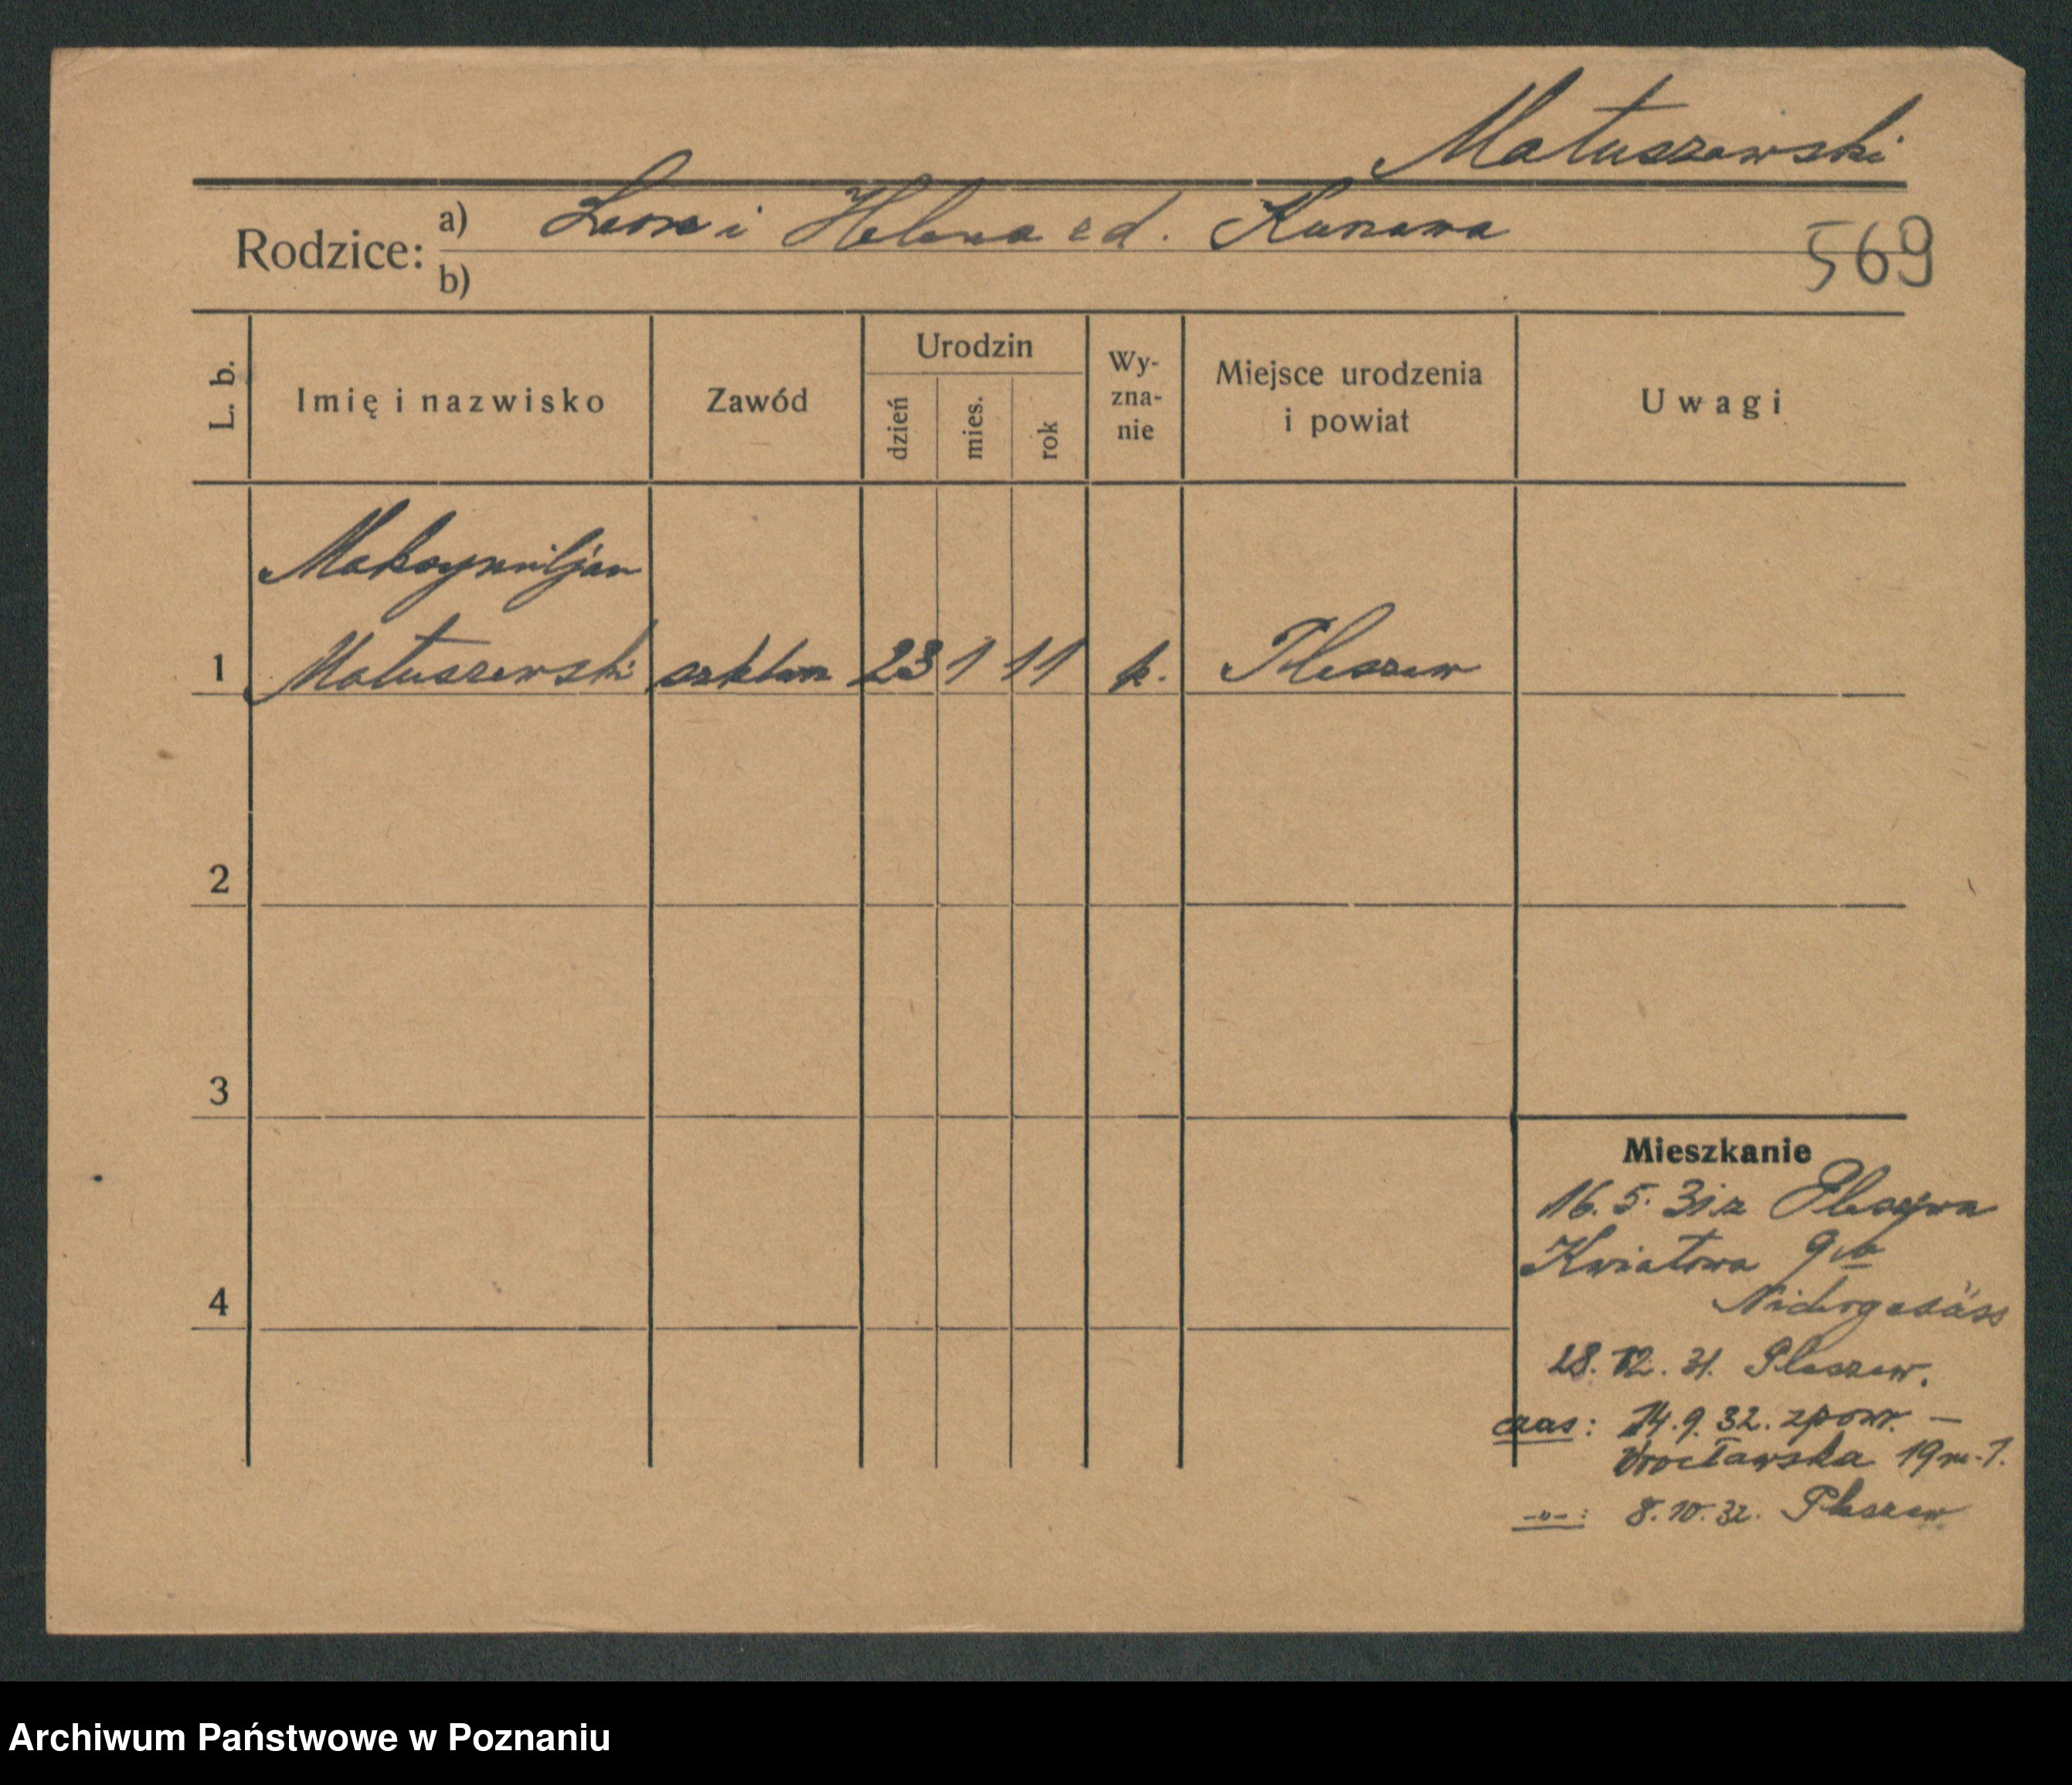 Matuszewski
Rodzice: a) Leon i Helena zd. Kunawa
b)
569
L. b.
Imię i nazwisko
Zawód
Urodzin
dzień
mies.
rok
Wy-
zna-
nie
Miejsce urodzenia
i powiat
Uwagi
Maksymiljan
1 Matuszewski szklarz 23 1 11 k. Pleszew
2
3
4
Mieszkanie
16. 5. 31. z Pleszewa
Kwiatowa 9
28. 12. 31. Pleszew.
czas: 14. 9. 32. zpowr. —
Wrocławska 19 m. 7.
-"- : 8. 10. 32. Pleszew
Archiwum Państwowe w Poznaniu